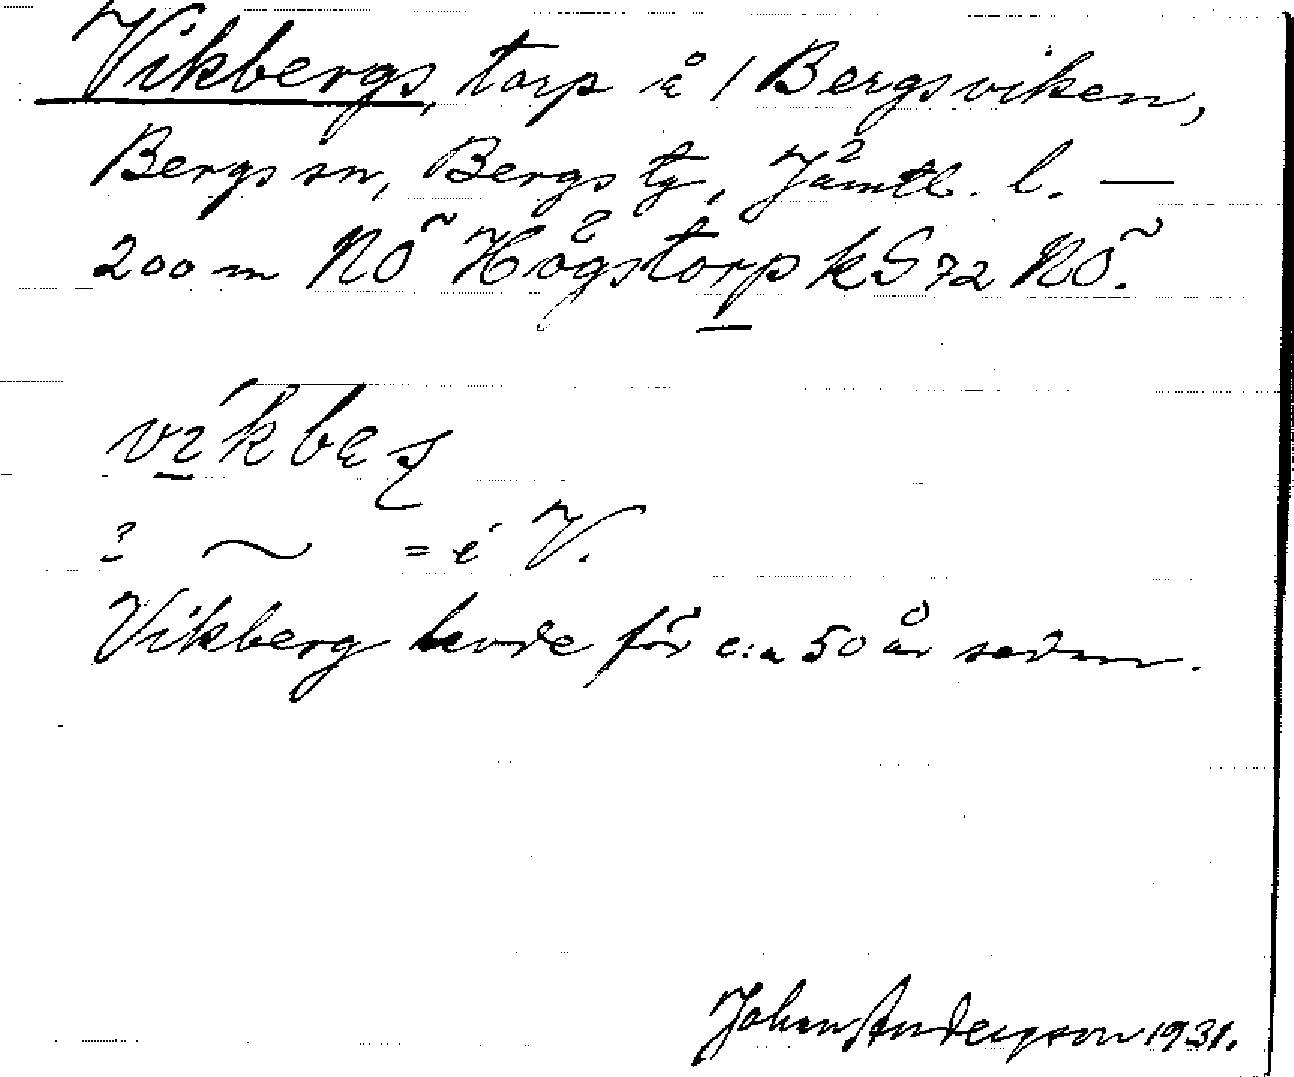 Vikbergs, torp å 1 Bergsviken,
Bergs sn, Bergs tg, Jämtl. l. —
200 m NÖ Högstorp kS72 NÖ.
= i V.
Vikberg levde för c:a 50 år sedan.
Johan Anderson 1931.